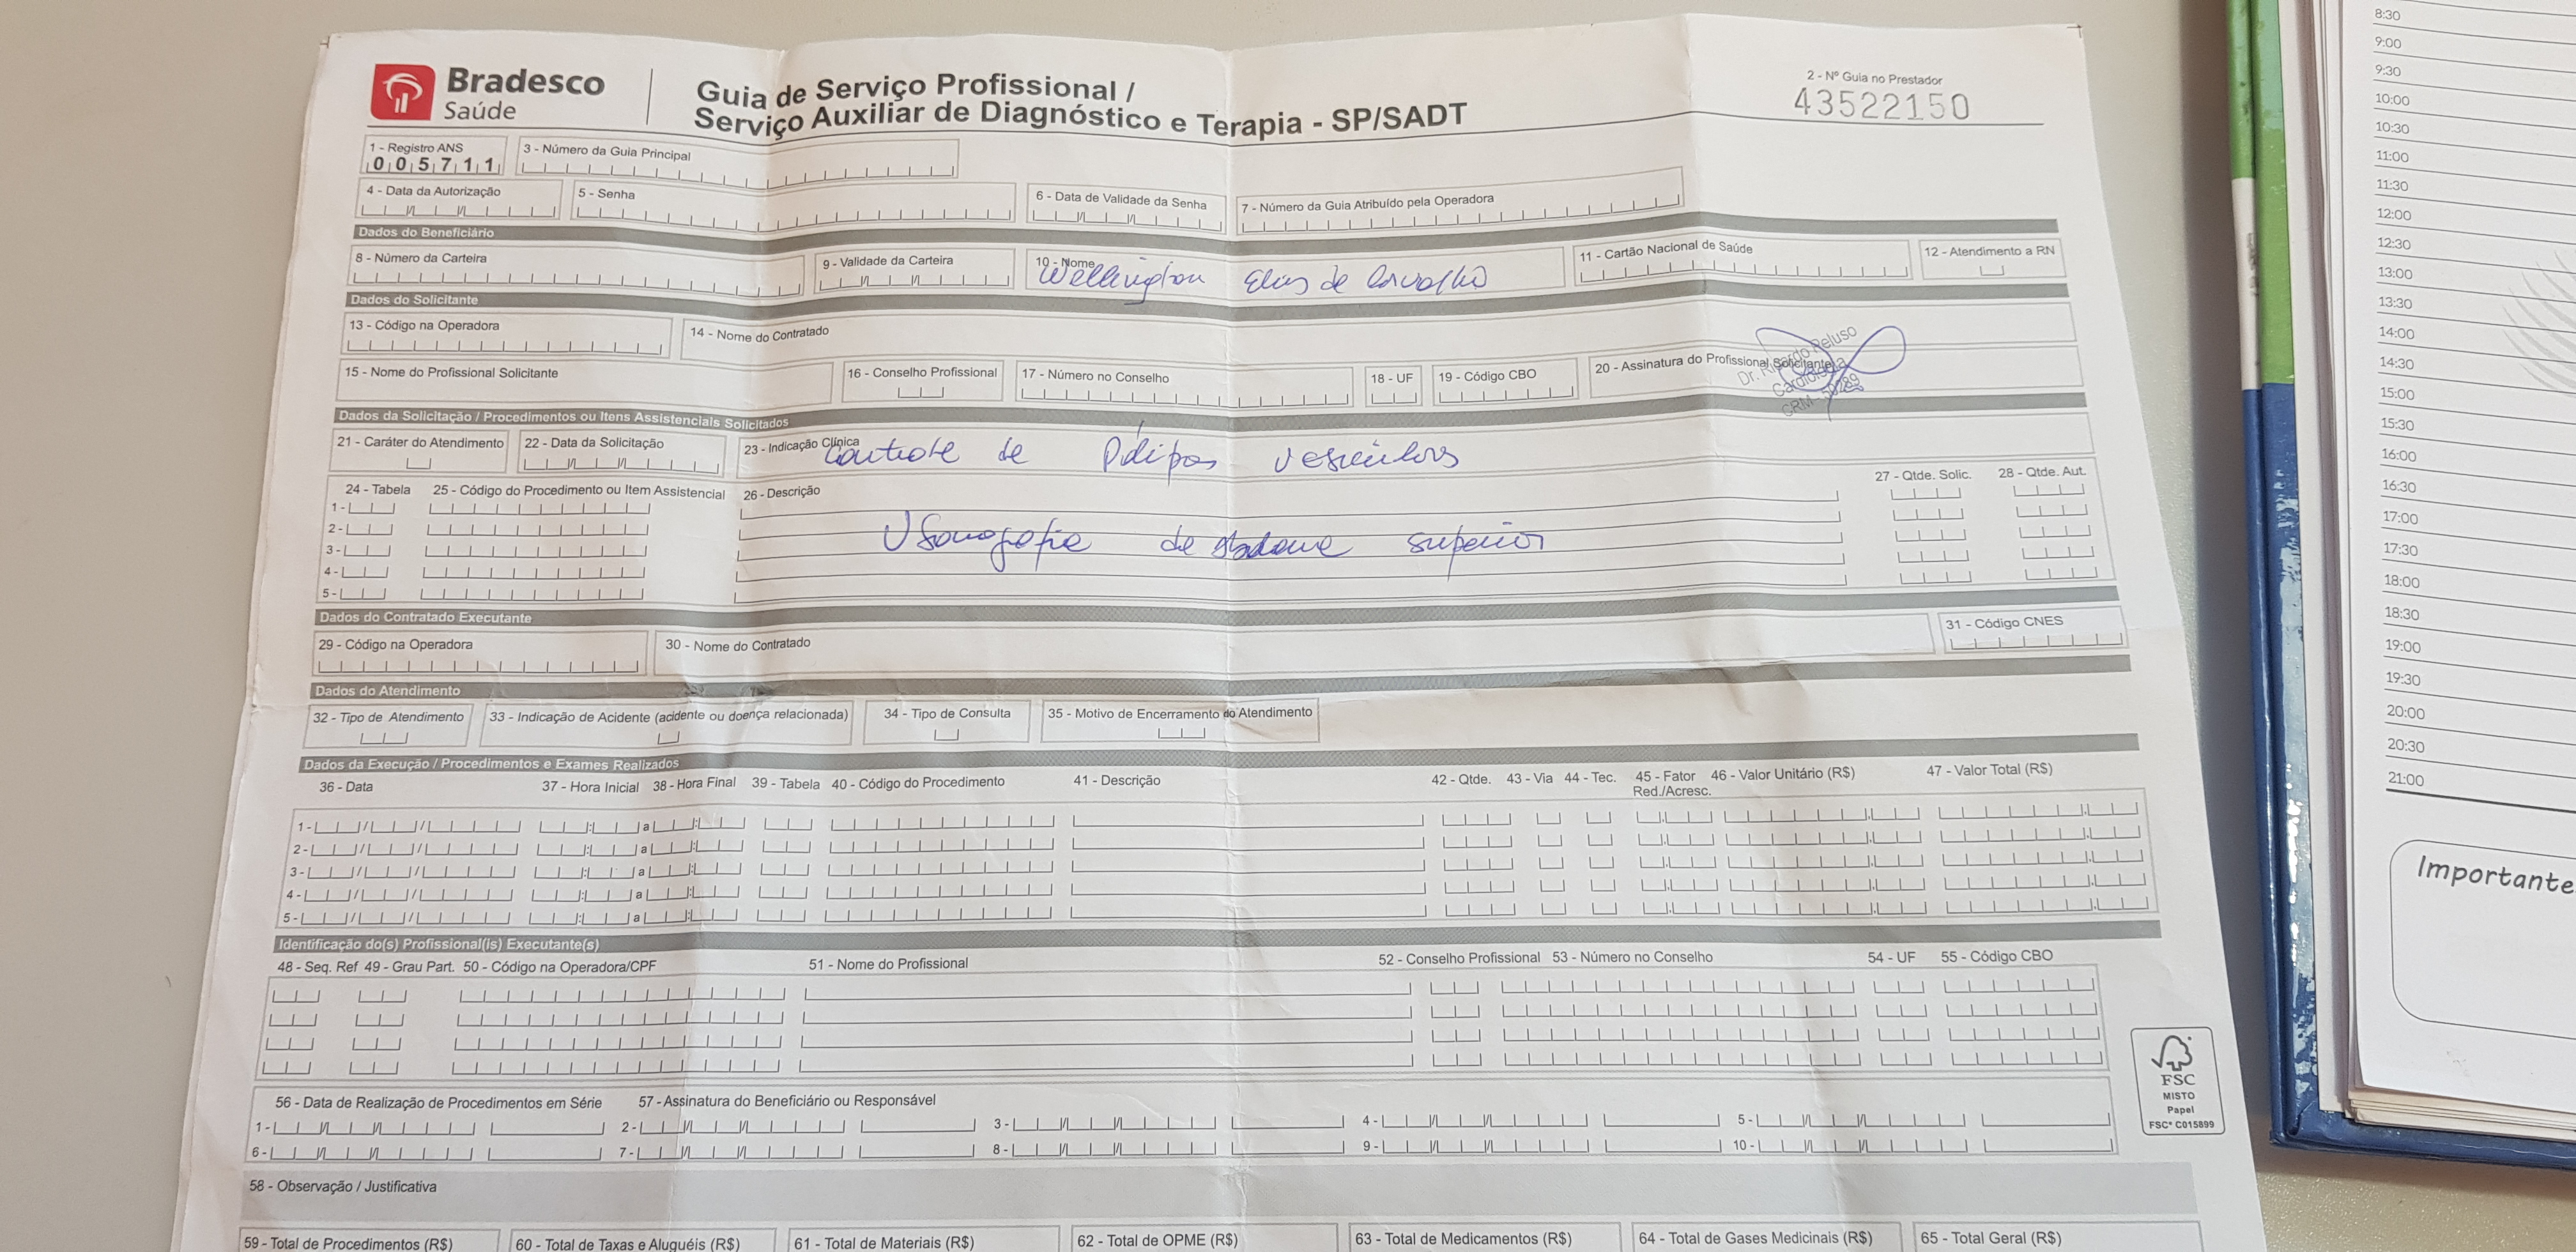 Bradesco
Saúde
Guia de Serviço Profissional /
Serviço Auxiliar de Diagnóstico e Terapia - SP/SADT
2 - Nº Guia no Prestador
43522150
1 - Registro ANS
005711
3 - Número da Guia Principal
4 - Data da Autorização
5 - Senha
6 - Data de Validade da Senha
7 - Número da Guia Atribuído pela Operadora
Dados do Beneficiário
8 - Número da Carteira
9 - Validade da Carteira
10 - Nome
Wellington Elias de Carvalho
11 - Cartão Nacional de Saúde
12 - Atendimento a RN
Dados do Solicitante
13 - Código na Operadora
14 - Nome do Contratado
15 - Nome do Profissional Solicitante
16 - Conselho Profissional
17 - Número no Conselho
18 - UF
19 - Código CBO
20 - Assinatura do Profissional Solicitante
Dr. Peluso
CRM
Dados da Solicitação / Procedimentos ou Itens Assistenciais Solicitados
21 - Caráter do Atendimento
22 - Data da Solicitação
23 - Indicação Clínica
Controle de Pólipos vesiculares
24 - Tabela
25 - Código do Procedimento ou Item Assistencial
26 - Descrição
27 - Qtde. Solic.
28 - Qtde. Aut.
1 -
2 -
3 -
4 -
5 -
de abdome superior
Dados do Contratado Executante
29 - Código na Operadora
30 - Nome do Contratado
31 - Código CNES
Dados do Atendimento
32 - Tipo de Atendimento
33 - Indicação de Acidente (acidente ou doença relacionada)
34 - Tipo de Consulta
35 - Motivo de Encerramento do Atendimento
Dados da Execução / Procedimentos e Exames Realizados
36 - Data
37 - Hora Inicial
38 - Hora Final
39 - Tabela
40 - Código do Procedimento
41 - Descrição
42 - Qtde.
43 - Via
44 - Tec.
45 - Fator Red./Acresc.
46 - Valor Unitário (R$)
47 - Valor Total (R$)
1 - a
2 - a
3 - a
4 - a
5 - a
Identificação do(s) Profissional(is) Executante(s)
48 - Seq. Ref
49 - Grau Part.
50 - Código na Operadora/CPF
51 - Nome do Profissional
52 - Conselho Profissional
53 - Número no Conselho
54 - UF
55 - Código CBO
56 - Data de Realização de Procedimentos em Série
57 - Assinatura do Beneficiário ou Responsável
1 - 2 - 3 - 4 - 5 -
6 - 7 - 8 - 9 - 10 -
58 - Observação / Justificativa
59 - Total de Procedimentos (R$)
60 - Total de Taxas e Aluguéis (R$)
61 - Total de Materiais (R$)
62 - Total de OPME (R$)
63 - Total de Medicamentos (R$)
64 - Total de Gases Medicinais (R$)
65 - Total Geral (R$)
FSC
MISTO
Papel
FSC® C015899
8:30
9:00
9:30
10:00
10:30
11:00
11:30
12:00
12:30
13:00
13:30
14:00
14:30
15:00
15:30
16:00
16:30
17:00
17:30
18:00
18:30
19:00
19:30
20:00
20:30
21:00
Importante